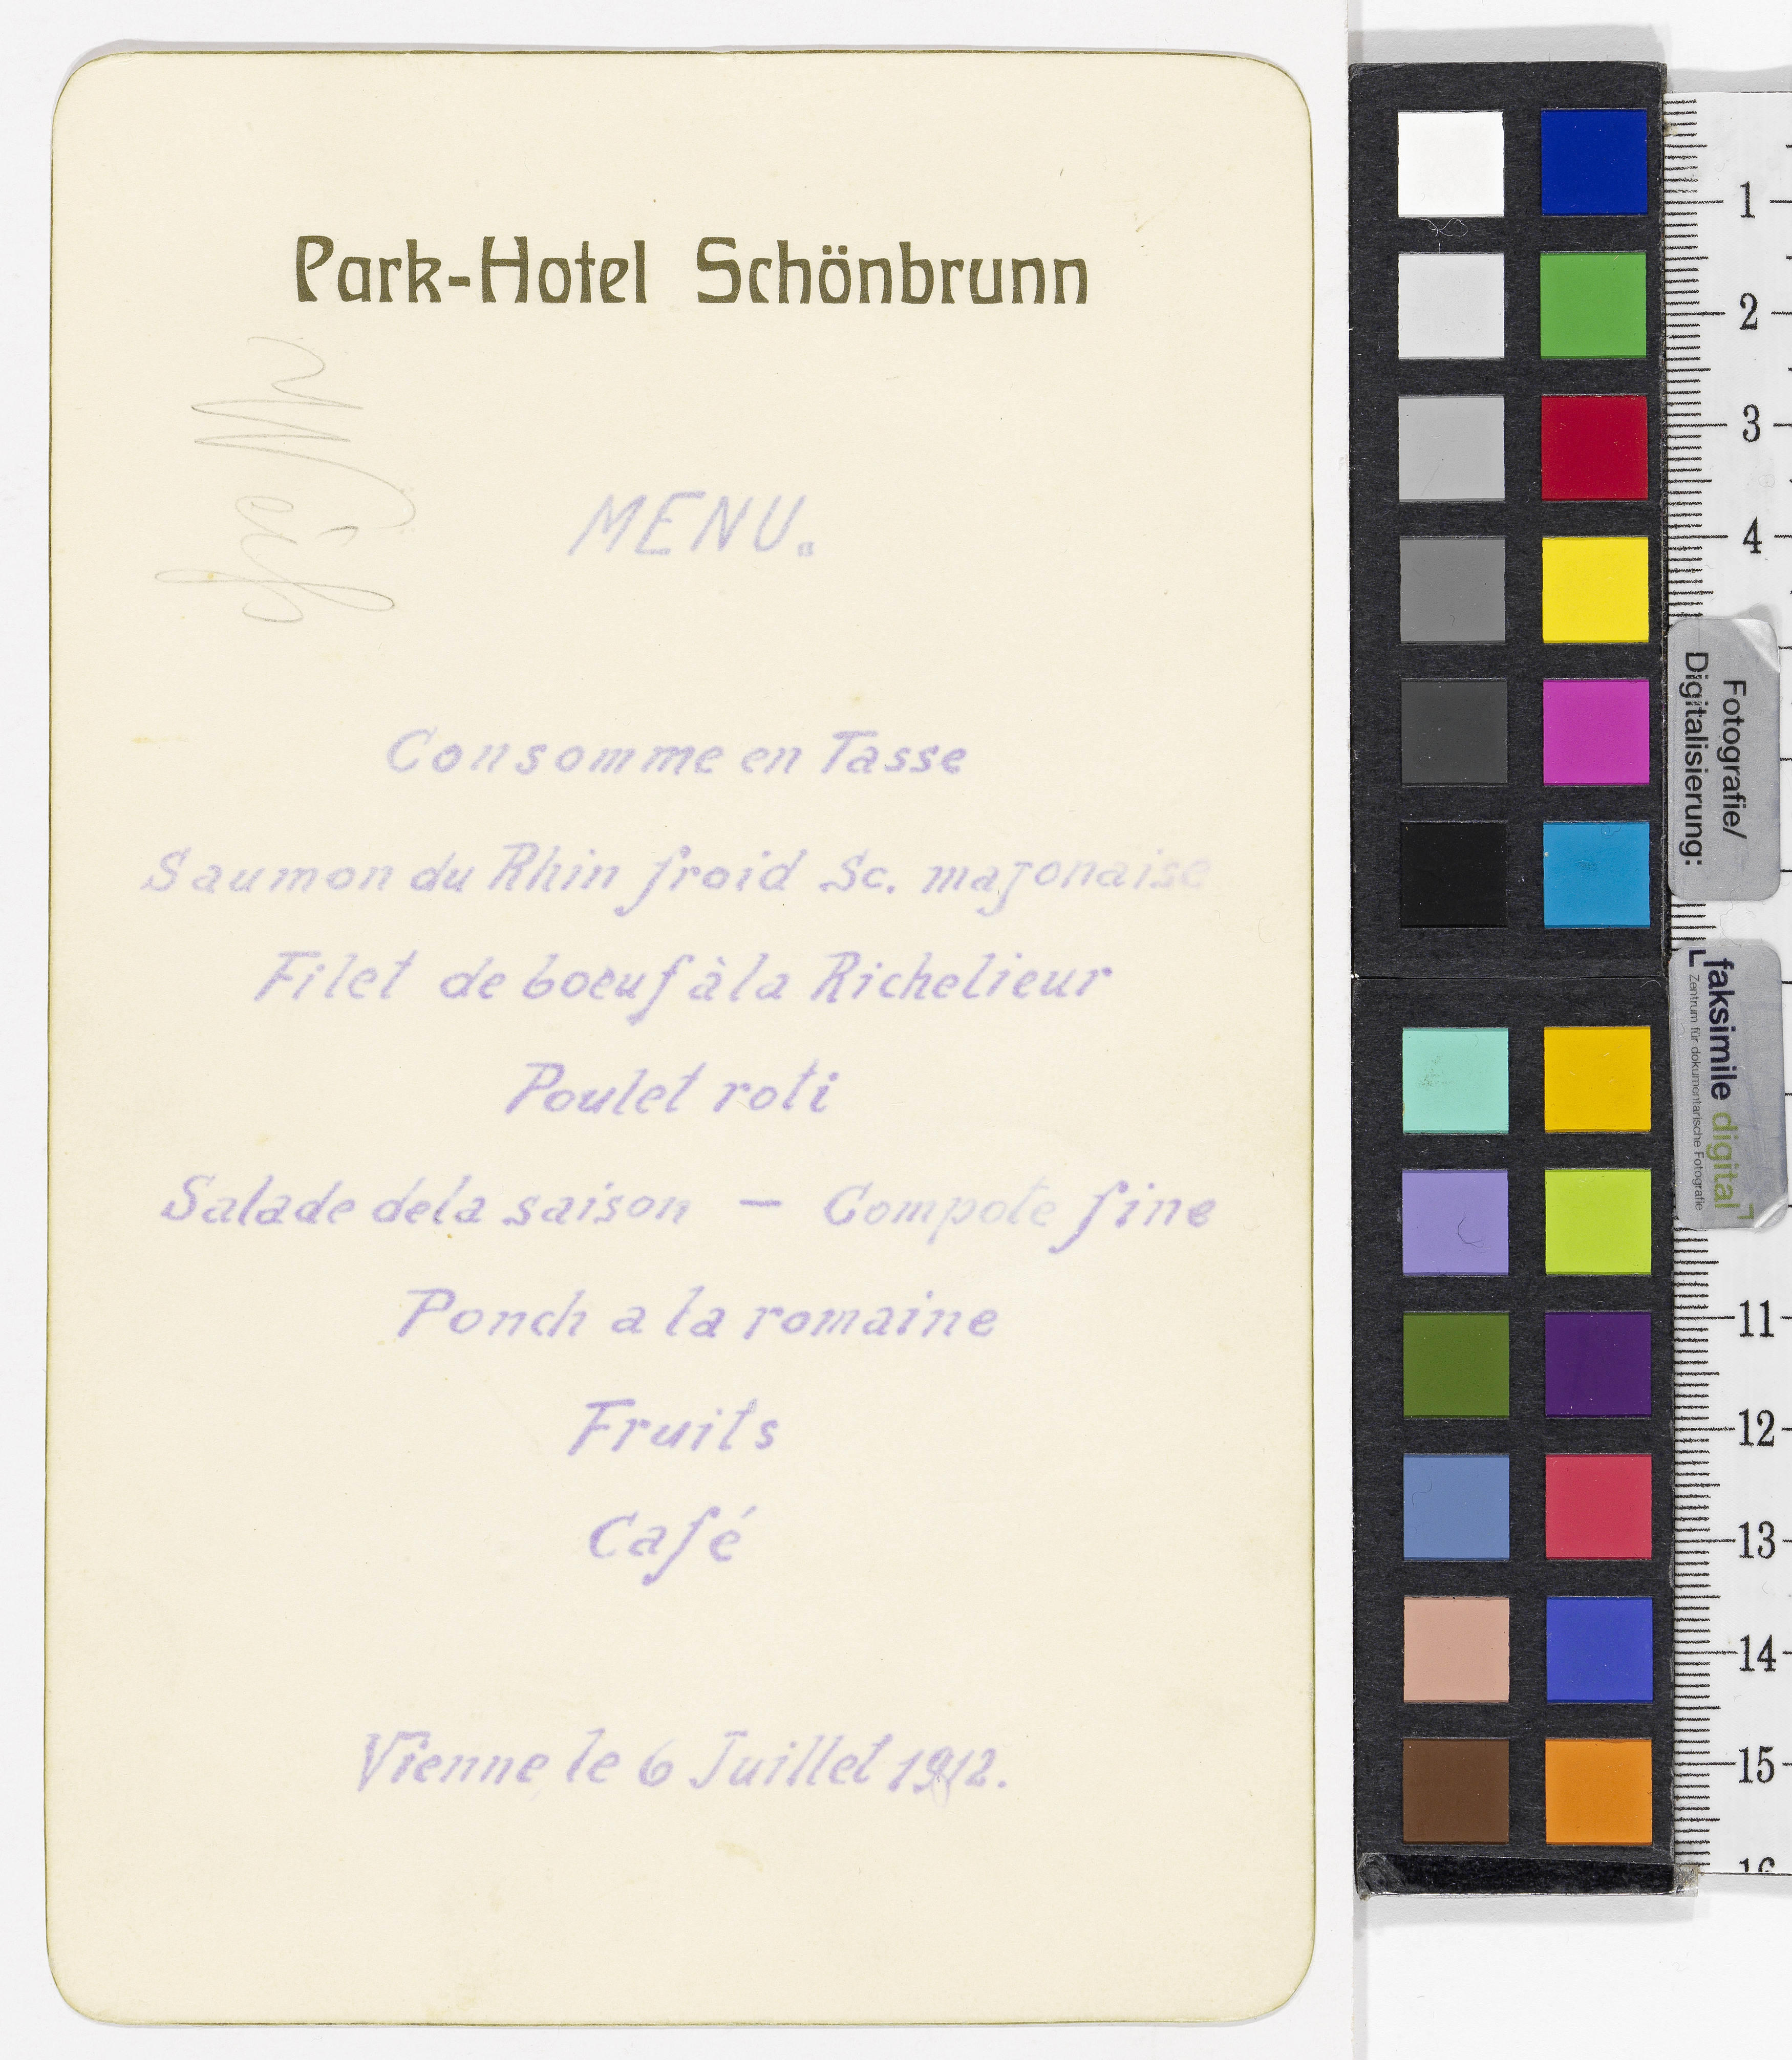 Park-Hotel Schönbrunn
MENU.
Consomme en Tasse
Saumon du Rhin froid Sc. majonaise
Filet de boeuf à la Richelieur
Poulet roti
Salade dela saison — Compote fine
Ponch a la romaine
Fruits
Café
Vienne, le 6 Juillet 1912.
1
2
3
4
11
12
13
14
15
16
Fotografie/
Digitalisierung:
faksimile digital
Zentrum für dokumentarische Fotografie